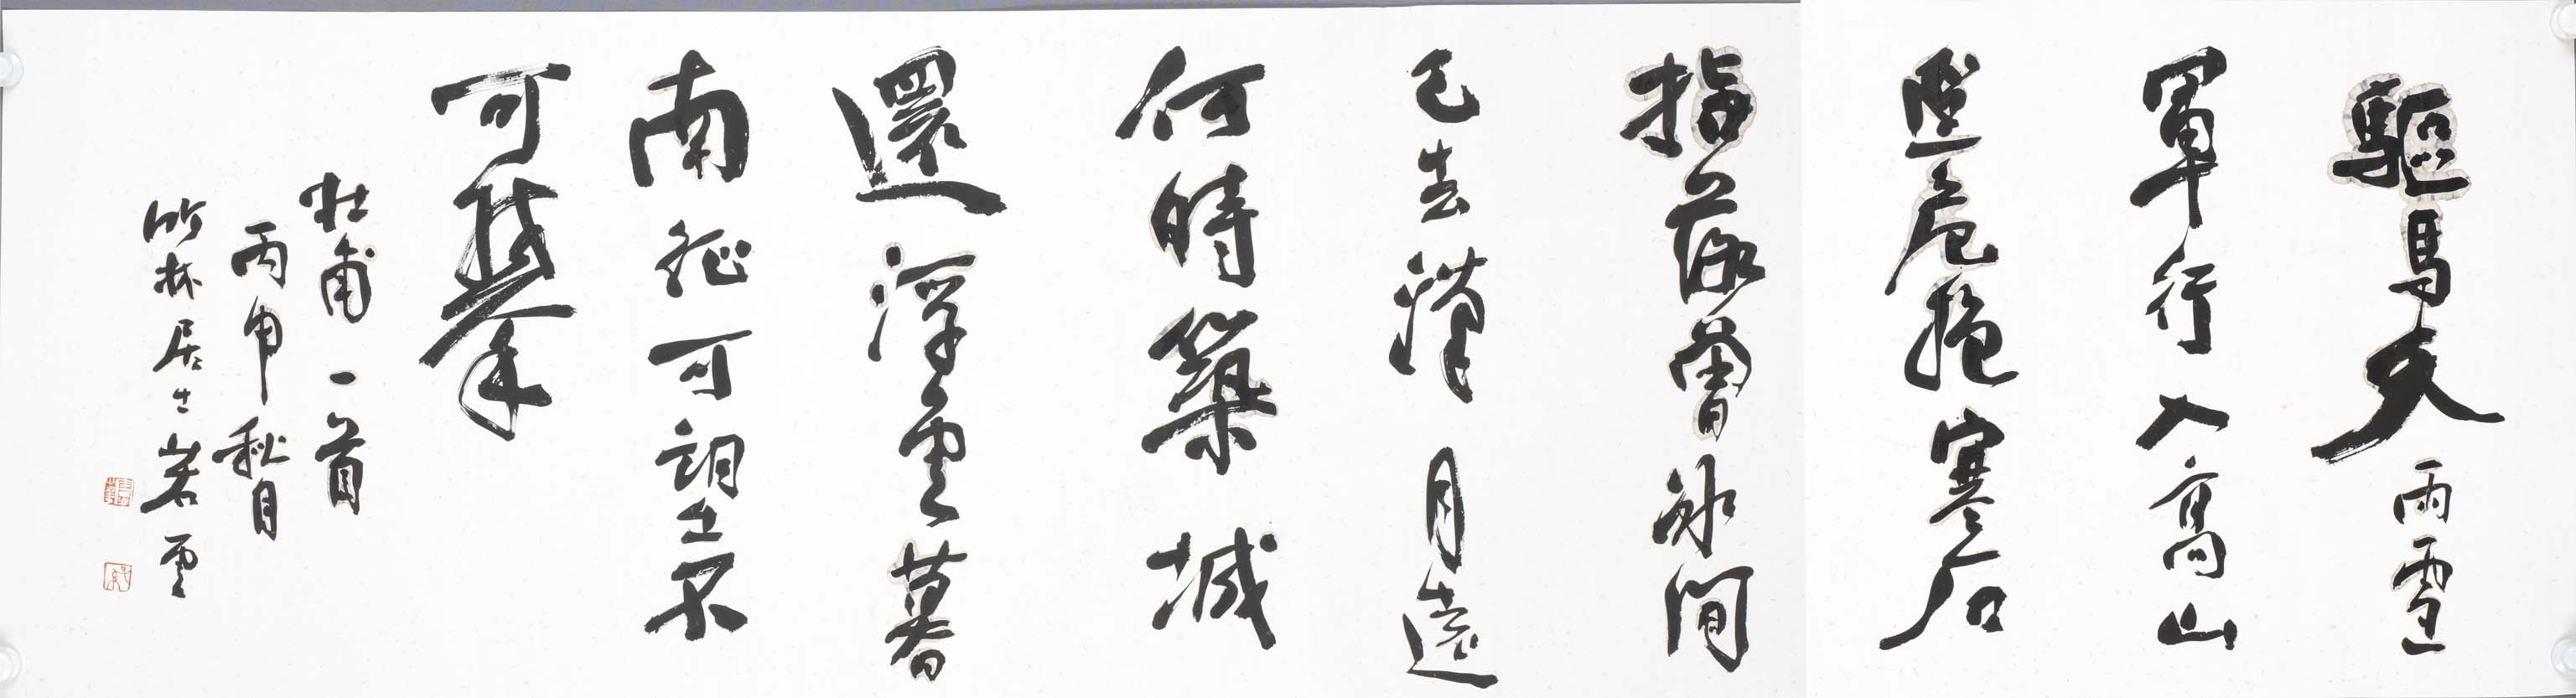 驅馬天雨雪
軍行入高山
逕危抱寒石
指落曾冰間
已去漢月遠
何時築城
還浮雲暮
南征可望不
可攀
杜甫一首
丙申秋月
竹林居士岩雲